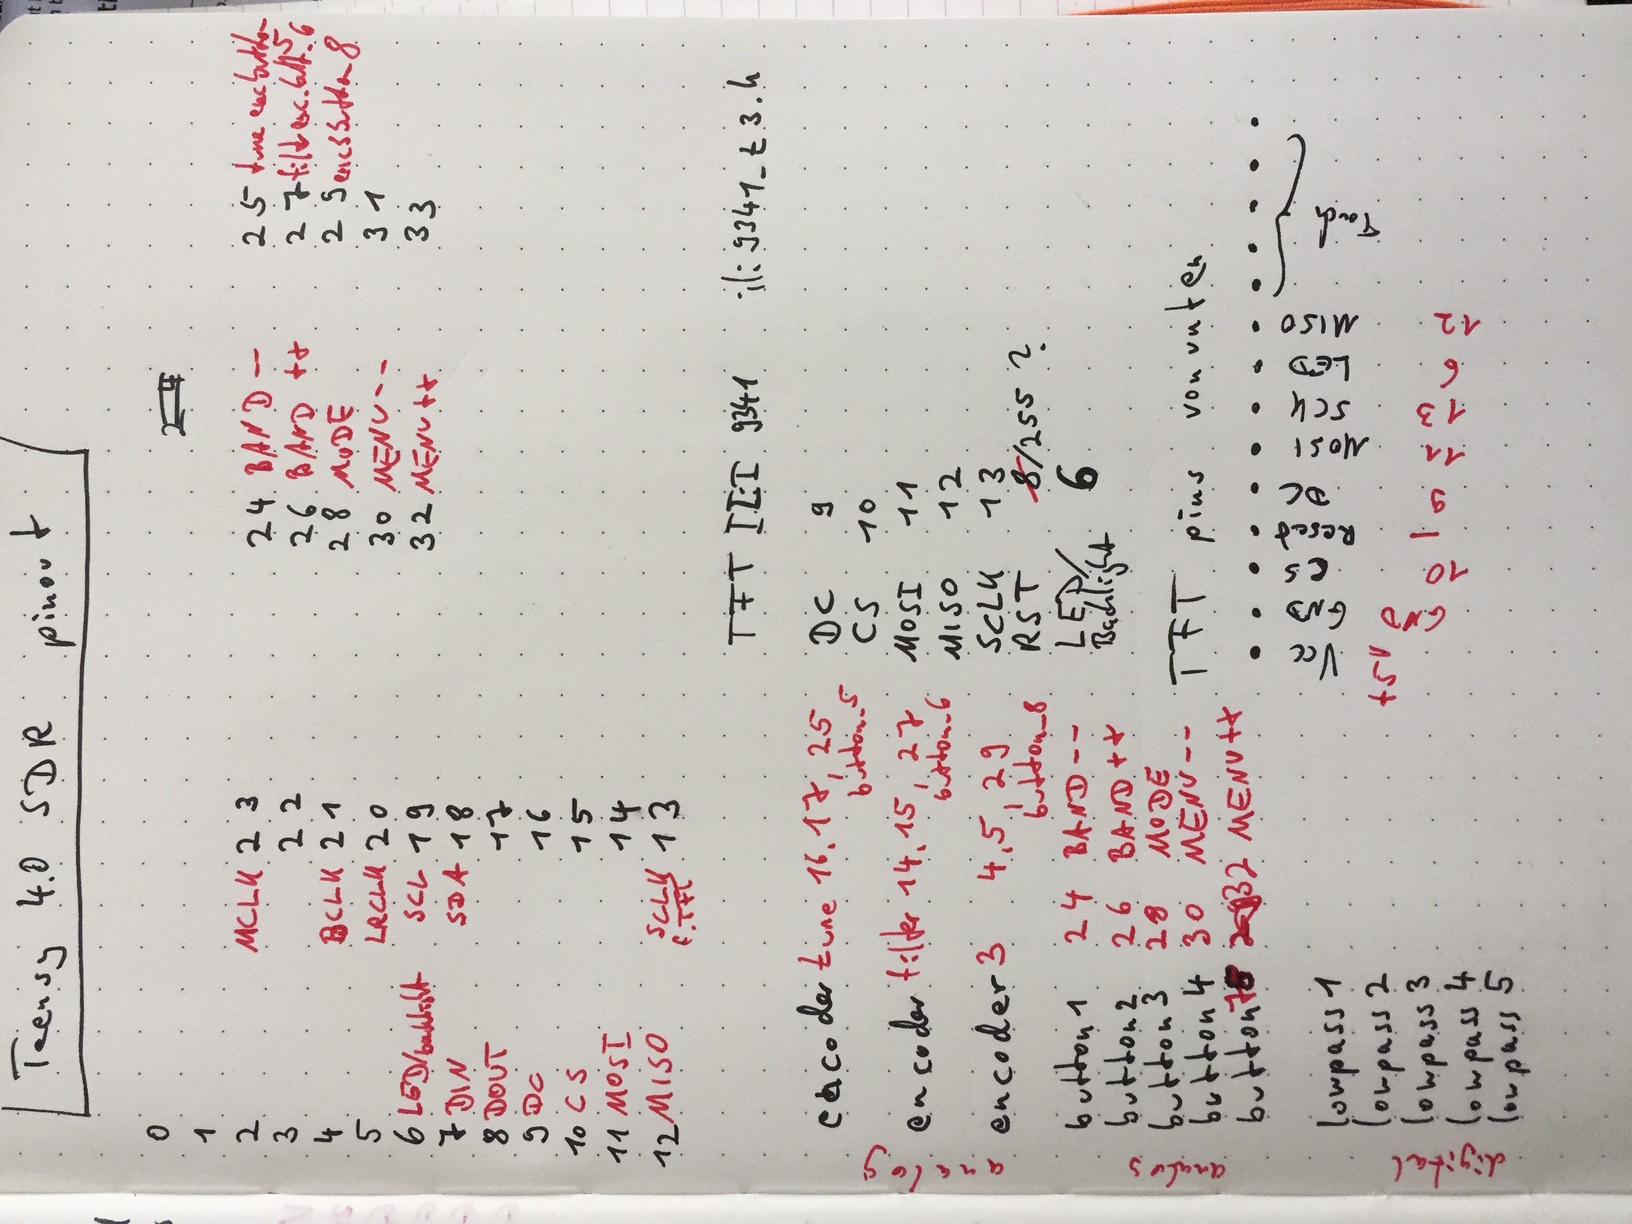 Teensy 4.0 SDR pinout
0
1
2 MCLK 23 24 BAND -- 25 tune enc button 5
3 22 26 BAND ++ 27 filt enc. butt. 6
4 BCLK 21 28 MODE 29 enc3 button 8
5 LRCLK 20 30 MENU -- 31
6 LED/backlight SCL 19 32 MENU ++ 33
7 DIN SDA 18
8 DOUT 17
9 DC 16
10 CS 15
11 MOSI 14
12 MISO SCLK 13
f. TFT
TFT ILI 9341 ili9341_t3.h
analog
encoder tune 16, 17, 25
button_5
encoder filter 14, 15, 27
button_6
encoder 3 4, 5, 29
button_8
DC 9
CS 10
MOSI 11
MISO 12
SCLK 13
RST 8/255 ?
LED/ 6
Backlight
button 1 24 BAND --
button 2 26 BAND ++
button 3 28 MODE
button 4 30 MENU --
button 7 32 MENU ++
TFT pins von unten
Vcc GND CS Reset DC MOSI SCK LED MISO Touch
+5V GND 10 — 9 11 13 6 12
digital
lowpass 1
lowpass 2
lowpass 3
lowpass 4
lowpass 5